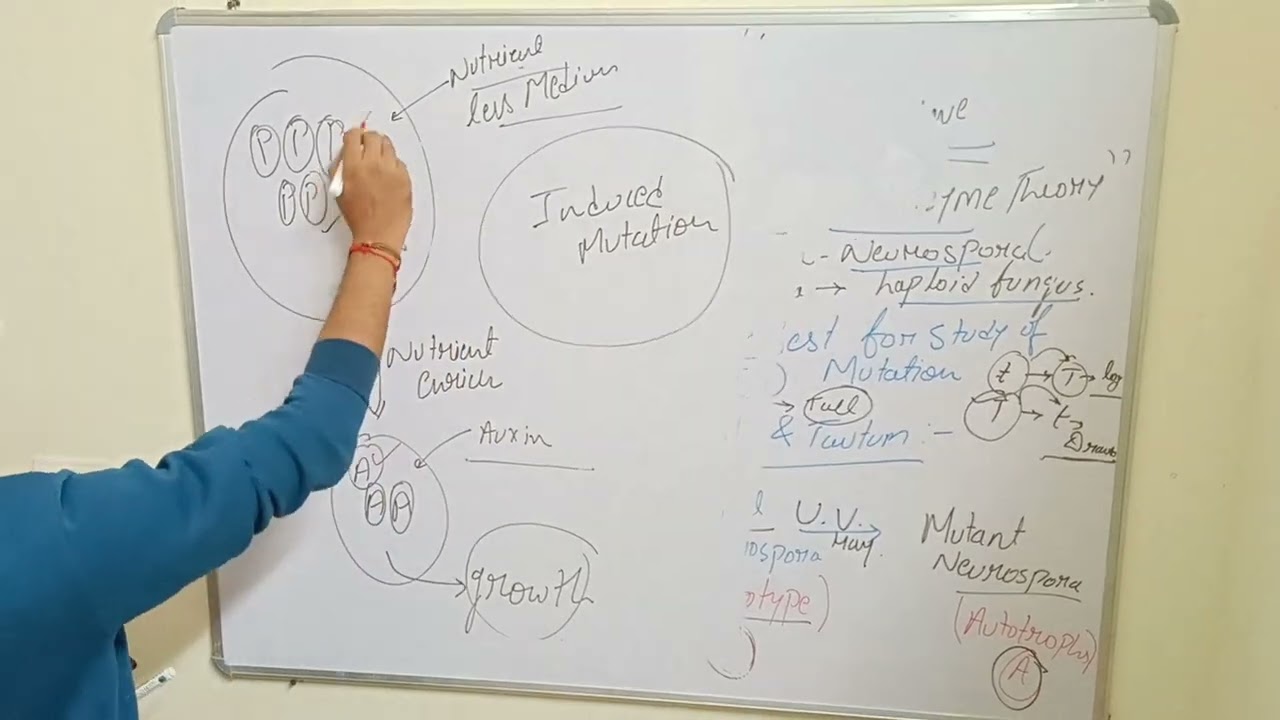 Nutrient
less Medium
P P P
P P
Induced
Mutation
Nutrient
Enrich
Auxin
A
A A
growth
we
yme Theory"
- Neurospora
→ haploid fungus.
est for study of
Mutation
→ Tall
& Tautum :-
t → T → log
T → t →
U.V.
May.
ospora
otype)
Mutant
Neurospora
(Autotrophs)
A